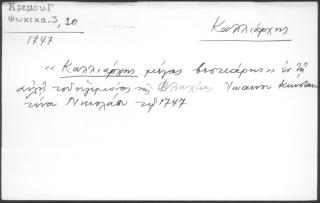 Κρέμου Γ
Φωκικά, 3, 20
1747
Καλλιάρχης
« Καλλιάρχης μέγας βεστιάρης » ἐν τῇ
αὐλῇ τοῦ ἡγεμόνος τῆς Βλαχίας Ἰωάννου Κωνσταν
τίνου Νικολάου τῷ 1747